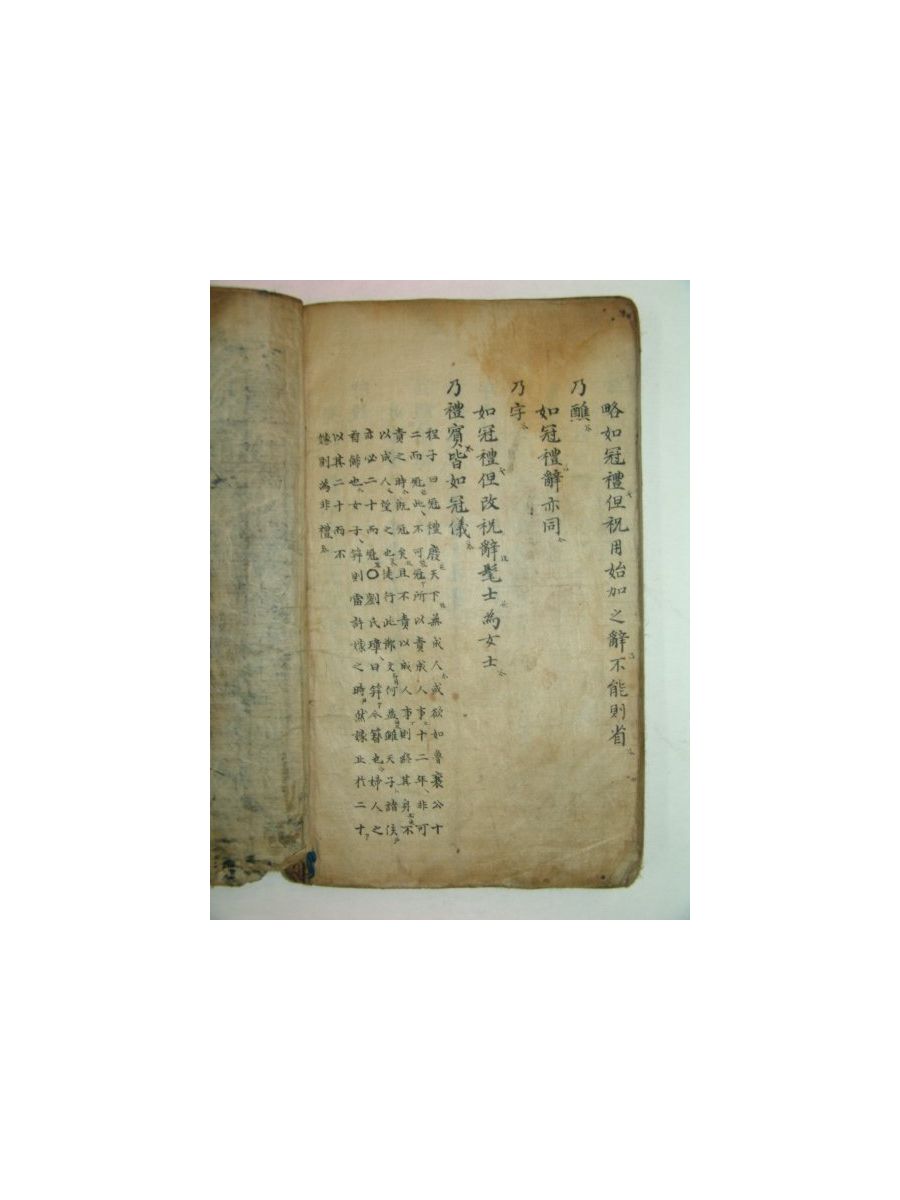 略如冠禮但祝用始加之辭不能則省
乃醮
如冠禮辭亦同
乃字
如冠禮但改祝辭髦士為女士
乃禮賓皆如冠儀
程子曰冠禮廢天下無成人或欲如魯襄公十
二而冠此不可冠所以責成人事十二年非可
責之時既冠矣且不責以成人事則終其身不
以成人望之也徒行此節文何益雖天子諸侯
亦必二十而冠〇劉氏璋曰笄今簪也婦人之
首飾也女子笄則當許嫁之時然嫁止於二十
以其二十而不
嫁則為非禮